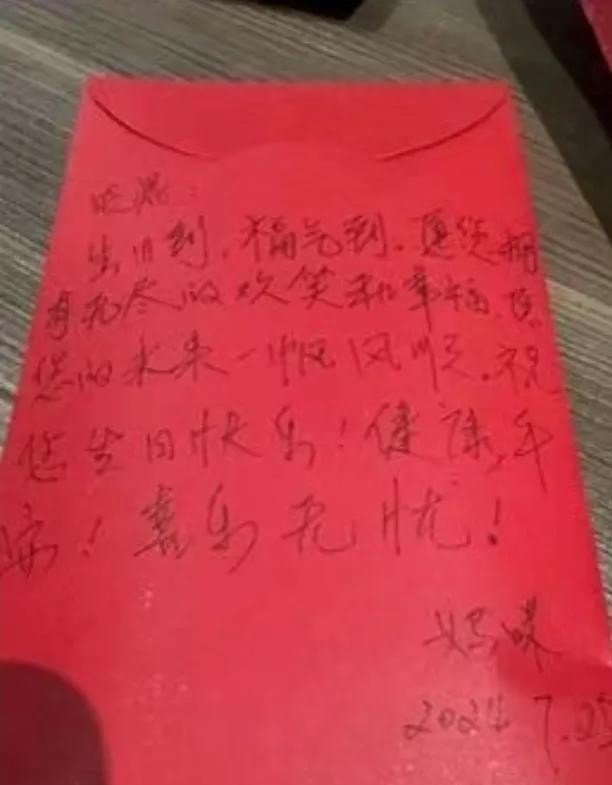 晓
生日到，福气到。愿您拥
有无尽的欢笑和幸福，愿
您的未来一帆风顺。祝
您生日快乐！健康，平
安！喜乐无忧！
妈咪
2024 7.25